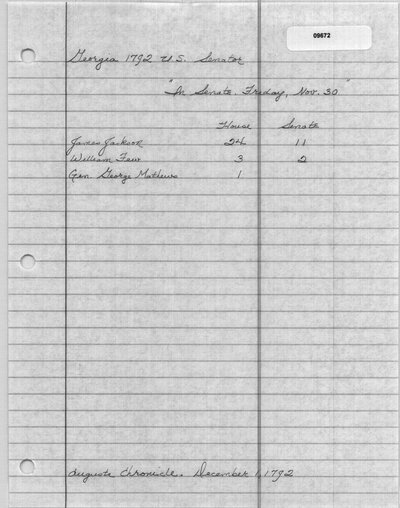 09672
Georgia 1792 U.S. Senator
"In Senate, Friday, Nov. 30"
House Senate
James Jackson 24 11
William Few 3 2
Gen. George Mathews 1
Augusta Chronicle. December 1, 1792